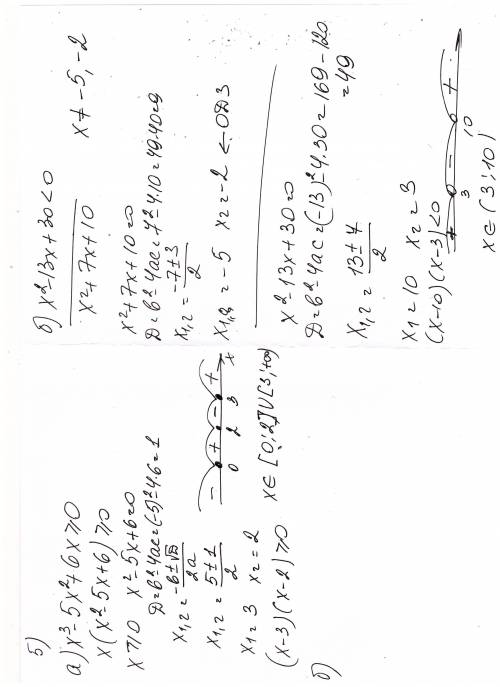 5)
а) x³-5x²+6x≥0
x(x²-5x+6)≥0
x≥0 x²-5x+6=0
D=b²-4ac=(-5)²-4.6=1
x₁,₂=-b±√D/2a
x₁,₂=5±1/2
x₁=3 x₂=2
(x-3)(x-2)≥0
- + - +
0 2 3 x
x∈[0;2]U[3;+∞)
б)
б) x²-13x+30<0
x²+7x+10 x≠-5,-2
x²+7x+10=0
D=b²-4ac=7²-4.10=49-40=9
x₁,₂=-7±3/2
x₁,₂=-5 x₂=-2 ← ОДЗ
x²-13x+30=0
D=b²-4ac=(-13)²-4.30=169-120
=49
x₁,₂=13±7/2
x₁=10 x₂=3
(x-10)(x-3)<0
+ - +
3 10
x∈(3;10)